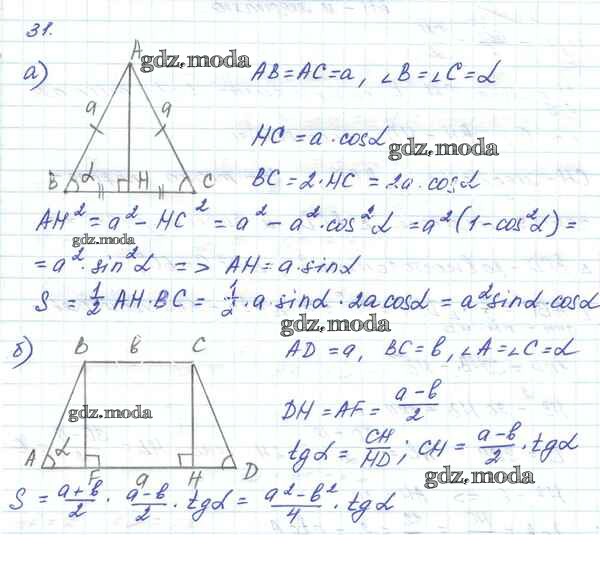 31.
а)
A
gdz.moda
a
a
B
α
H
C
AB = AC = a, ∠B = ∠C = α
HC = a · cosα
gdz.moda
BC = 2 · HC = 2a · cosα
AH² = a² - HC² = a² - a² · cos²α = a² (1 - cos²α) =
gdz.moda
= a² · sin²α => AH = a · sinα
S = 1/2 AH · BC = 1/2 · a · sinα · 2a cosα = a² sinα · cosα
gdz.moda
б)
B
в
C
AD = a, BC = в, ∠A = ∠C = α
gdz.moda
A
α
F
a
H
D
DH = AF = (a - в)/2
tgα = CH/HD ; CH = (a - в)/2 · tgα
gdz.moda
S = (a + в)/2 · (a - в)/2 · tgα = (a² - в²)/4 · tgα